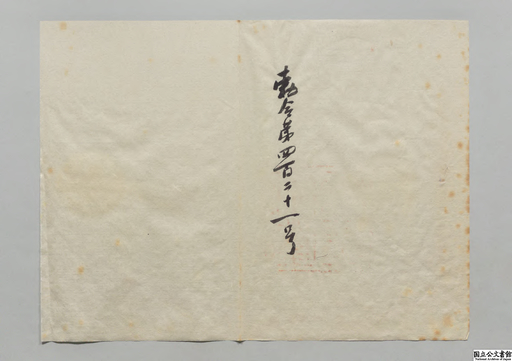 勅令第四百二十一号
国立公文書館
National Archives of Japan